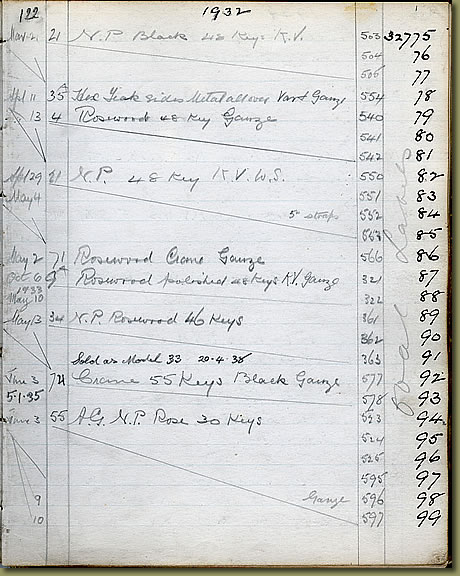 122 1932
21 N.P. Black 48 Keys K.V. 503 32775
504 76
505 77
Apl 11 35 Hex Teak sides Metal all over Gauze 554 78
13 4 Rosewood 48 Key Gauze 540 79
541 80
542 81
Apl 29 N.P. 48 Key K.V. W.S. 550 82
May 4 551 83
5 straps 552 84
85
May 2 71 Rosewood Crane Gauze 566 86
Oct 6 9 Rosewood polished 48 Keys K.V. Gauze 321 87
1933
May 10 322 88
May 13 34 N.P. Rosewood 46 Keys 361 89
362 90
Sold as Model 33 20-4-35 363 91
June 3 Crane 55 Keys Black Gauze 577 92
5-1-35 578 93
June 3 55 A.G. N.P. Rose 30 Keys 523 94
524 95
526 96
595 97
9 Gauze 596 98
10 597 99
oval Labels